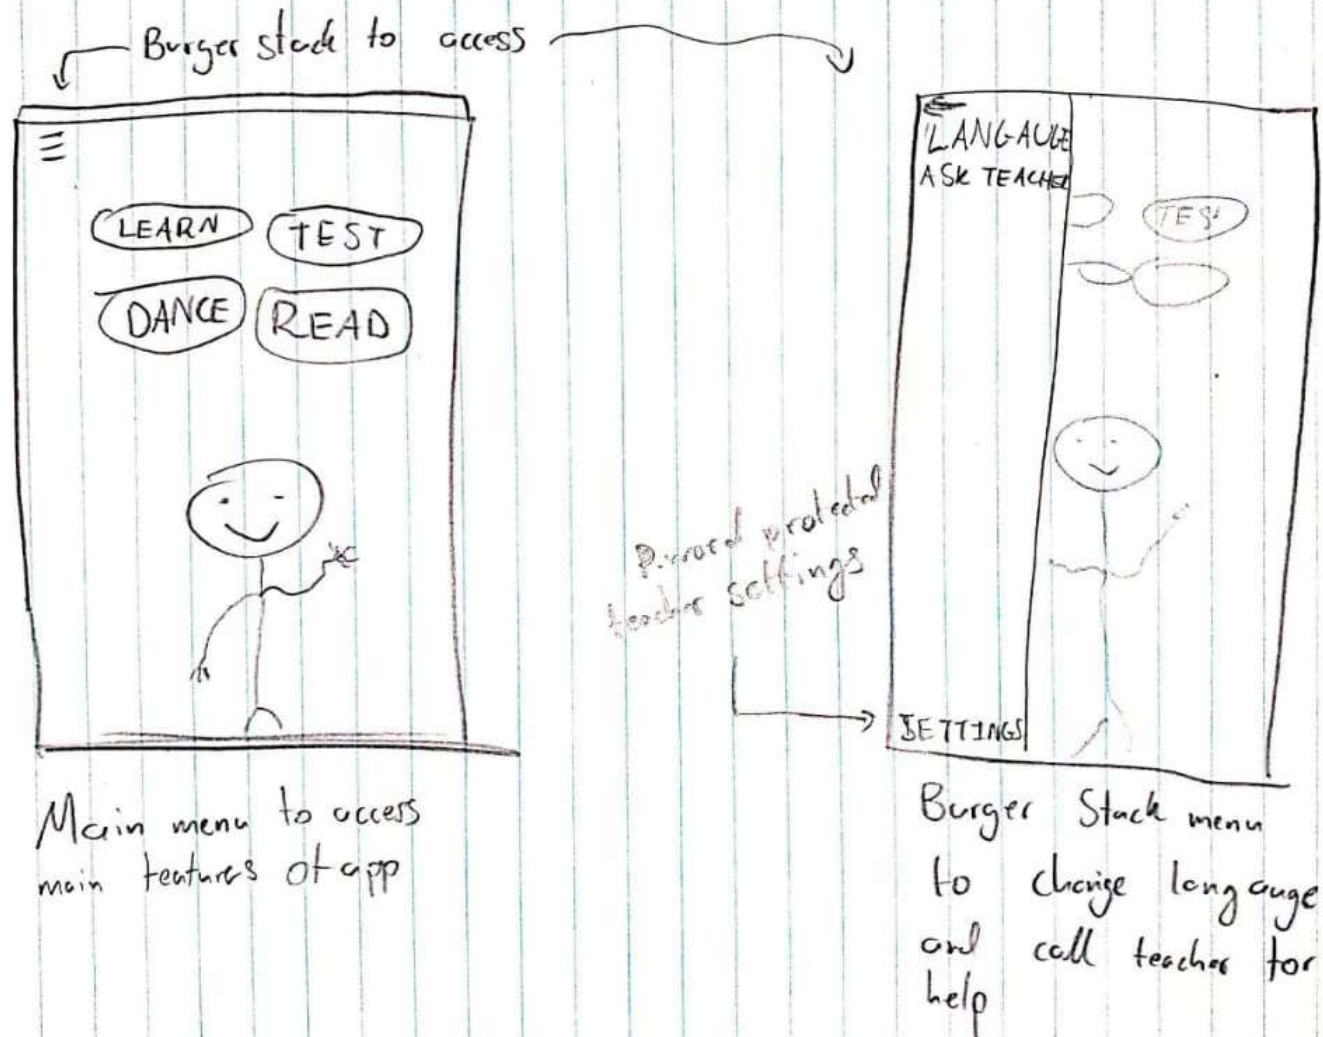 Burger stack to access
LEARN
TEST
DANCE
READ
Main menu to access
main features of app
LANGAUGE
ASK TEACHER
TES
protected
teacher settings
SETTINGS
Burger Stack menu
to change langauge
and call teacher for
help